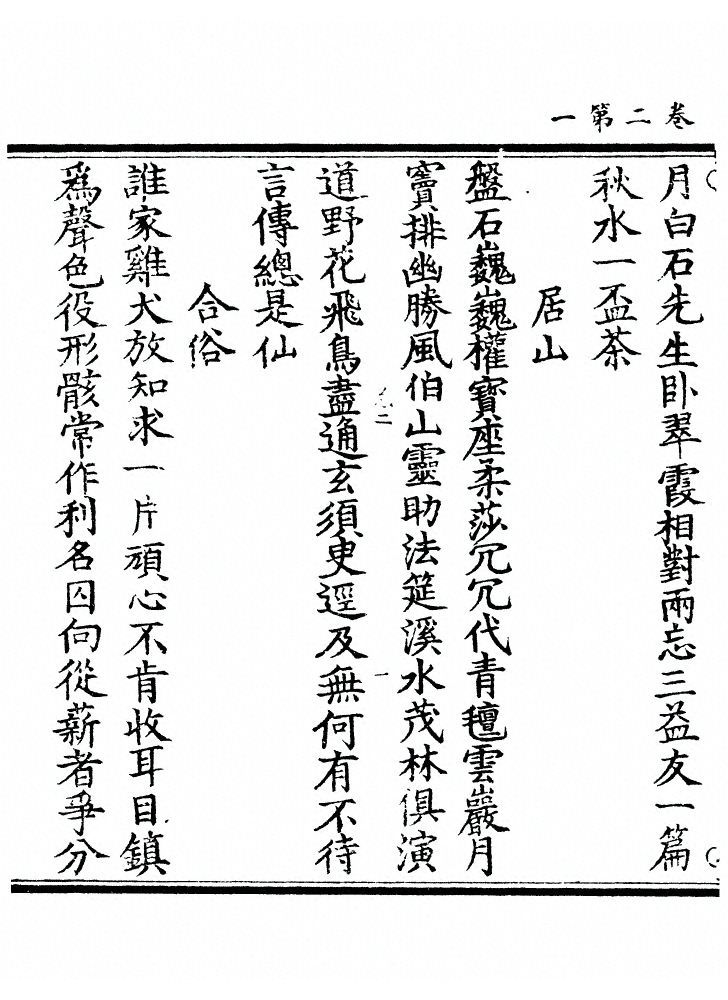 卷二第一
月白石先生卧翠霞相對兩忘三益友一篇
秋水一盃茶
居山
盤石巍巍權寶座柔莎冗冗代青氊雲巖月
竇排幽勝風伯山靈助法筵溪水茂林俱演
道野花飛鳥盡通玄須臾逕及無何有不待
言傳總是仙
合俗
誰家雞犬放知求一片頑心不肯收耳目鎮
爲聲色役形骸常作利名囚向從薪者爭分